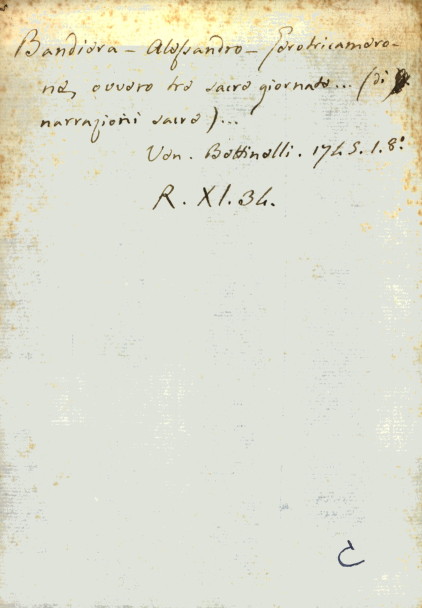 Bandiera - Alessandro - Gerotricamero-
ne, ovvero tre sacre giornate... (di
narrazioni sacre)...
Ven. Bettinelli. 1745. 1. 8º
R. XI. 34.
C